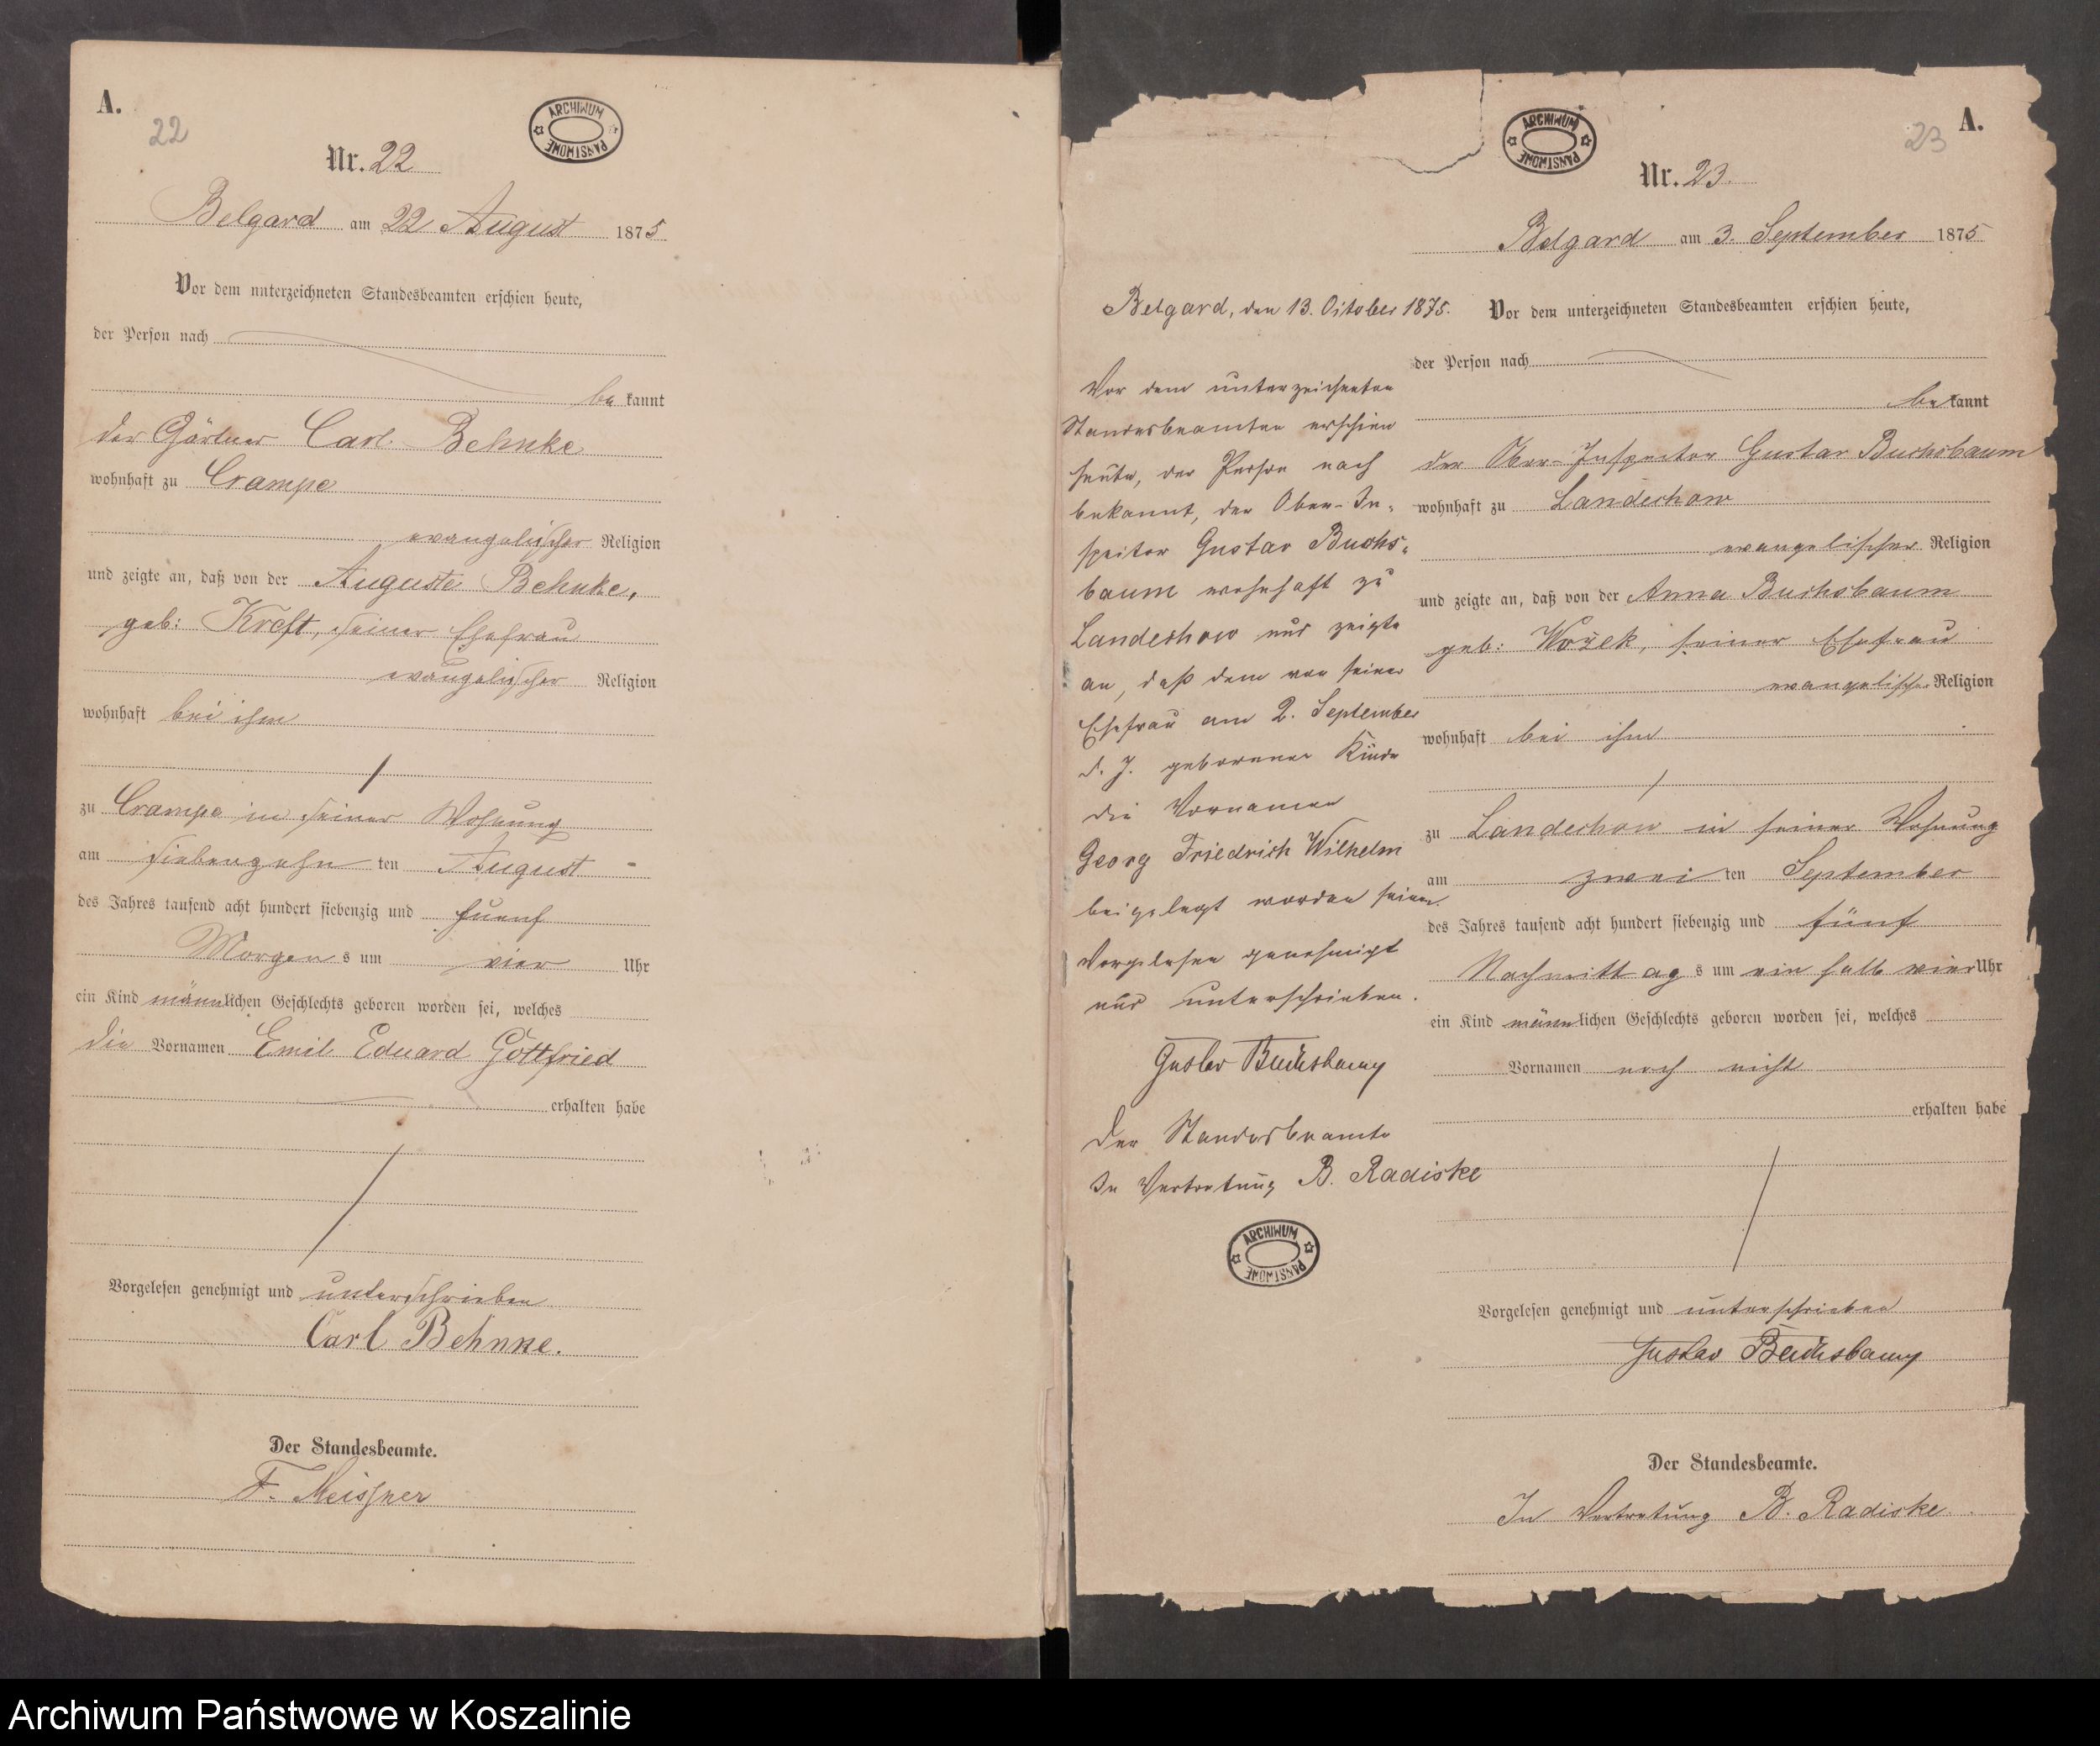 A.
22
ARCHIWUM PAŃSTWOWE
Nr. 22
Belgard am 22 August 1875
Vor dem unterzeichneten Standesbeamten erschien heute,
der Person nach
be kannt
der Gärtner Carl Behnke
wohnhaft zu Crampe
evangelischer Religion
und zeigte an, daß von der Auguste Behnke,
geb: Kreft, seiner Ehefrau
evangelischer Religion
wohnhaft bei ihm
zu Crampe in seiner Wohnung
am siebenzehn ten August
des Jahres tausend acht hundert siebenzig und fuenf
Morgen s um vier Uhr
ein Kind männlichen Geschlechts geboren worden sei, welches
die Vornamen Emil Eduard Gottfried
erhalten habe
Vorgelesen genehmigt und unterschrieben
Carl Behnke.
Der Standesbeamte.
F. Meissner
A.
23
ARCHIWUM PAŃSTWOWE
Nr. 23.
Belgard am 3. September 1875
Vor dem unterzeichneten Standesbeamten erschien heute,
der Person nach
be kannt
der Ober-Inspector Gustav Buchsbaum
wohnhaft zu Landechow
evangelischer Religion
und zeigte an, daß von der Anna Buchsbaum
geb: seiner Ehefrau
evangelischer Religion
wohnhaft bei ihm
zu Landechow in seiner Wohnung
am zwei ten September
des Jahres tausend acht hundert siebenzig und fünf
Nachmittag s um ein halb vier Uhr
ein Kind männlichen Geschlechts geboren worden sei, welches
Vornamen noch nicht
erhalten habe
Vorgelesen genehmigt und unterschrieben
Gustav Buchsbaum
Der Standesbeamte.
In Vertretung B. Radiske
Belgard, den 13. October 1875.
Vor dem unterzeichneten
Standesbeamten erschien
heute, der Person nach
bekannt, der Ober-In-
spector Gustav Buchs-
baum wohnhaft zu
Landechow und zeigte
an, daß dem von seiner
Ehefrau am 2. September
d. J. geborenen Kinde
die Vornamen
Georg Friedrich Wilhelm
beigelegt worden seien.
Vorgelesen genehmigt
und unterschrieben.
Gustav Buchsbaum
Der Standesbeamte
In Vertretung B. Radiske
ARCHIWUM PAŃSTWOWE
Archiwum Państwowe w Koszalinie